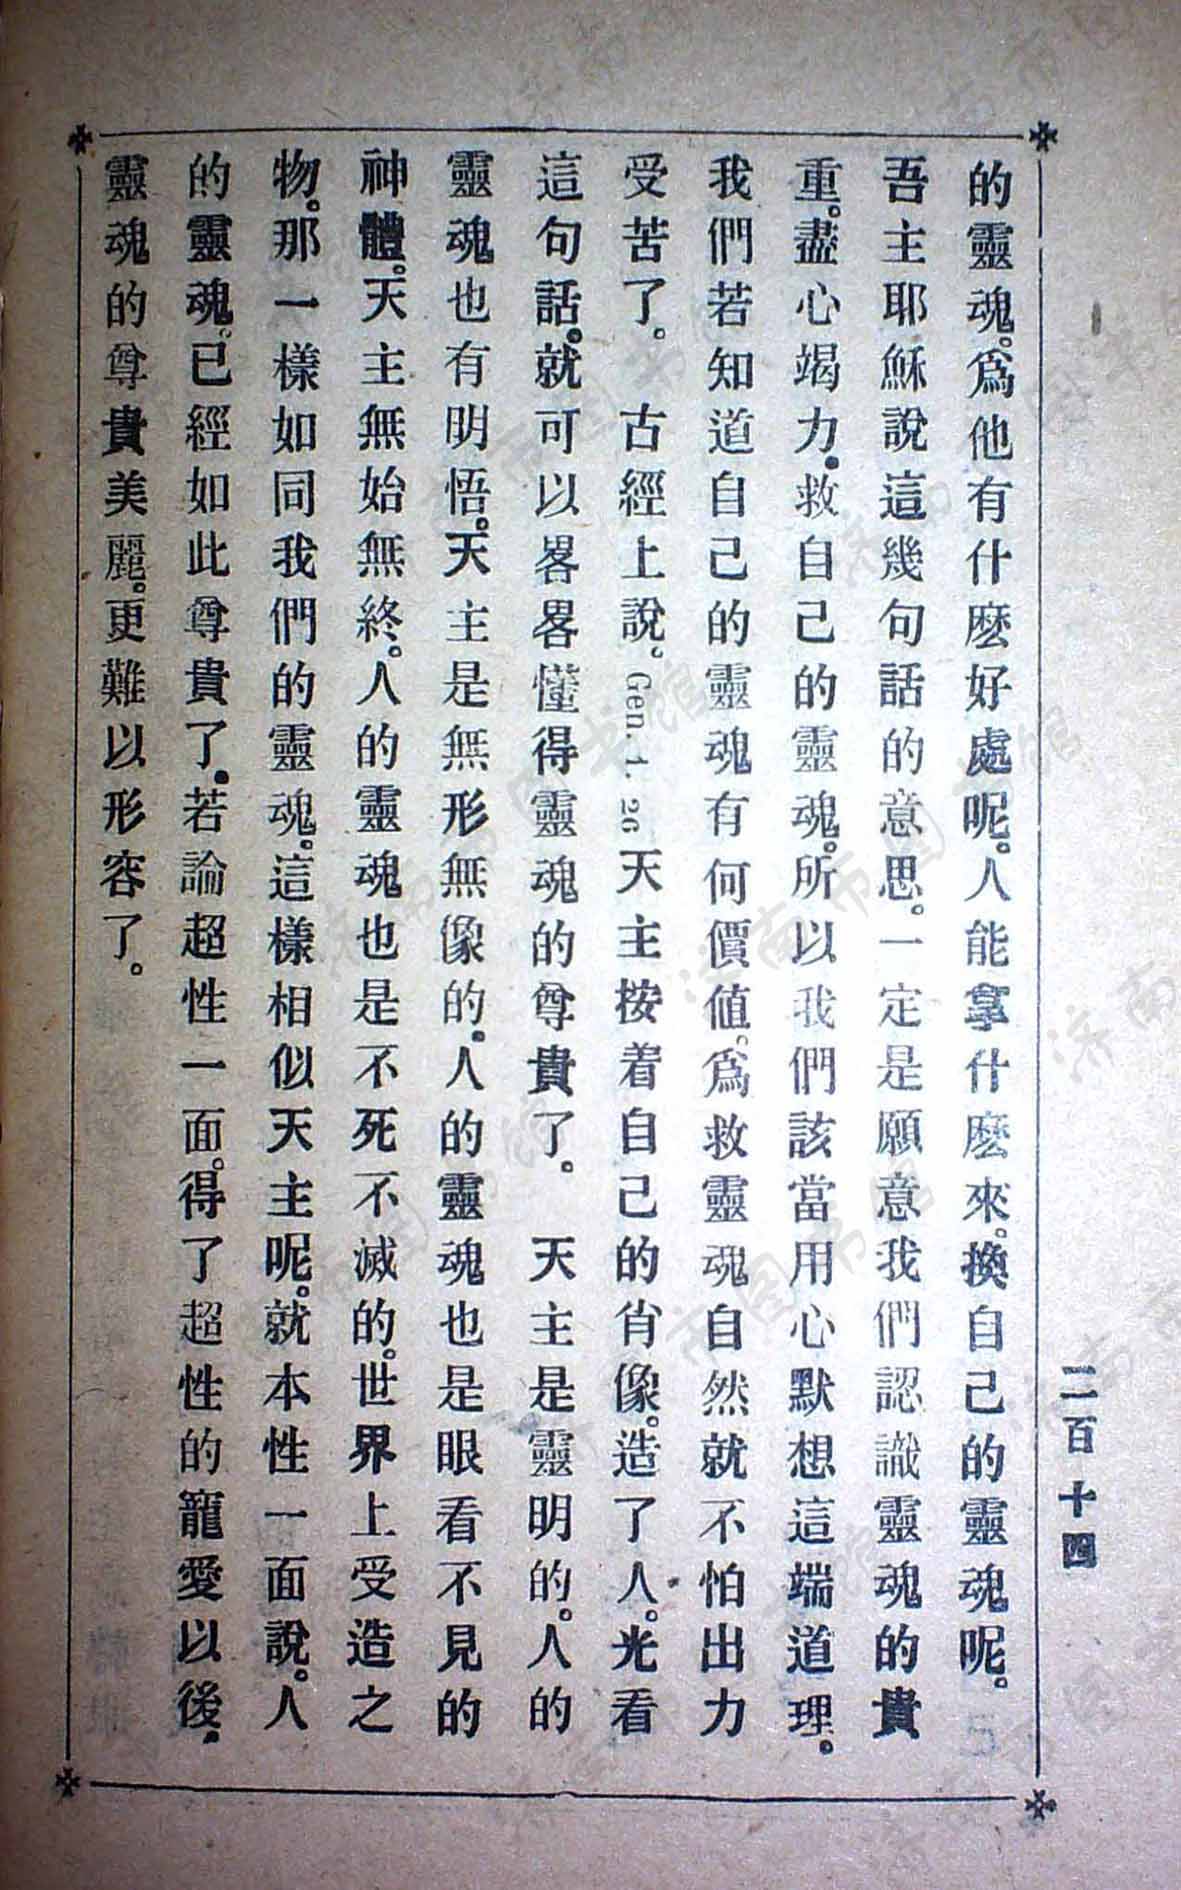 的靈魂。爲他有什麽好處呢。人能拿什麽來。換自己的靈魂呢。
吾主耶穌說這幾句話的意思。一定是願意我們認識靈魂的貴
重。盡心竭力。救自己的靈魂。所以我們該當用心默想這端道理。
我們若知道自己的靈魂有何價値。爲救靈魂自然就不怕出力
受苦了。 古經上說。Gen. 1. 26天主按着自己的肖像。造了人。光看
這句話。就可以畧畧懂得靈魂的尊貴了。 天主是靈明的。人的
靈魂也有明悟。天主是無形無像的。人的靈魂也是眼看不見的
神體。天主無始無終。人的靈魂也是不死不滅的。世界上受造之
物。那一樣如同我們的靈魂。這樣相似天主呢。就本性一面說。人
的靈魂。已經如此尊貴了。若論超性一面。得了超性的寵愛以後。
靈魂的尊貴美麗。更難以形容了。
二百十四
济南市图书馆